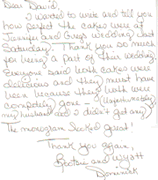 Dear David,
I wanted to write and tell you
how great the cakes were at
Jennifer and Greg's wedding last
Saturday. Thank you so much
for being a part of their wedding.
Everyone said both cakes were
delicious and they must have
been because they both were
completely gone - (Unfortunately
my husband and I didn't get any)
The monogram looked great!
Thank you again,
Gretchen and Wyatt